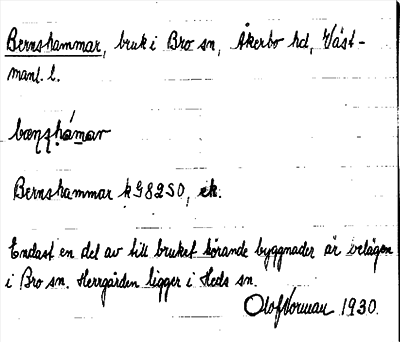 Bernshammar, bruk i Bro sn, Åkerbo hd, Väst-
manl. l.
Bernshammar kG82SO, ek.
Endast en del av till bruket hörande byggnader är belägen
i Bro sn. Herrgården ligger i Heds sn.
Olof Norman 1930.